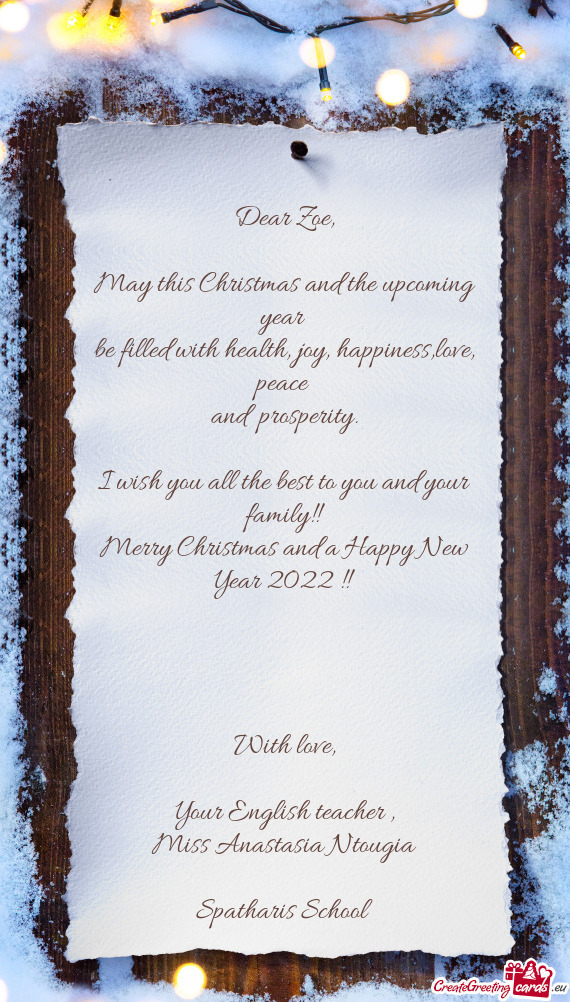 Dear Zoe,
May this Christmas and the upcoming
year
be filled with health, joy, happiness,love,
peace
and prosperity.
I wish you all the best to you and your
family!!
Merry Christmas and a Happy New
Year 2022 !!
With love,
Your English teacher ,
Miss Anastasia Ntougia
Spatharis School
CreateGreetingcards.eu